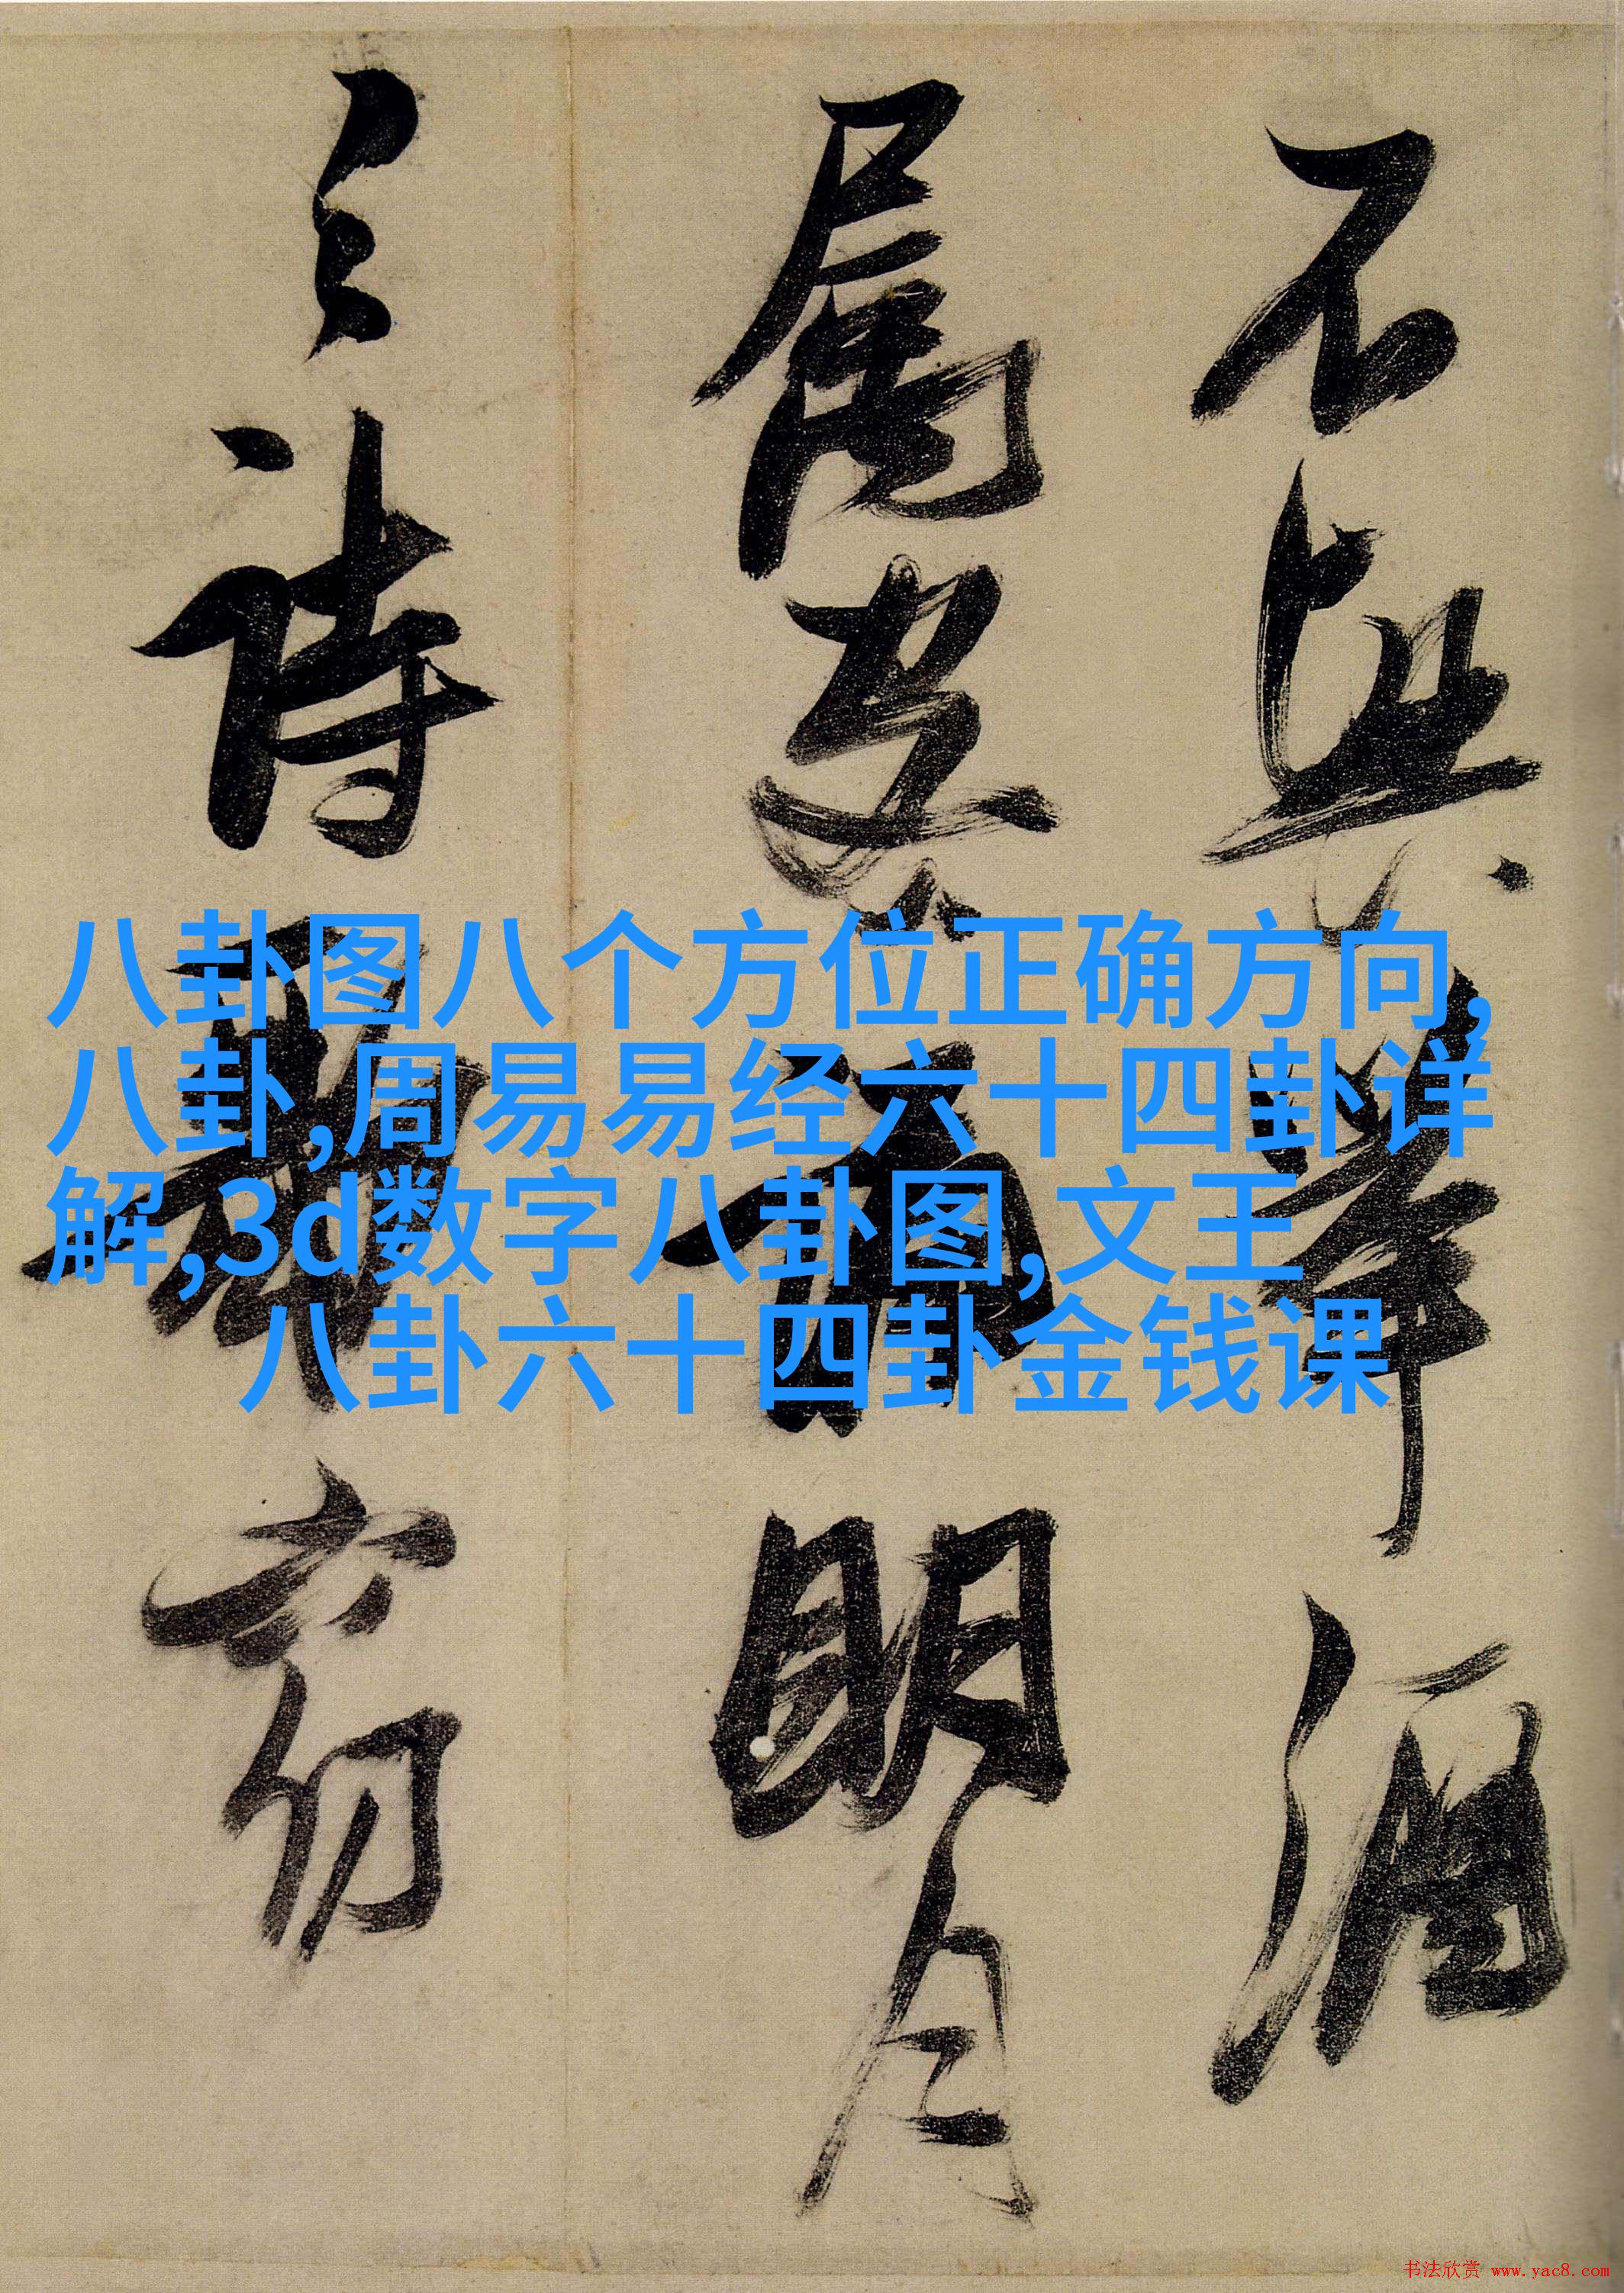 不興舉酒
屬客誦明月
之詩歌窈
八卦图八个方位正确方向,
八卦,周易易经六十四卦详
解,3d数字八卦图,文王
八卦六十四卦金钱课
书法欣赏 www.yac8.com